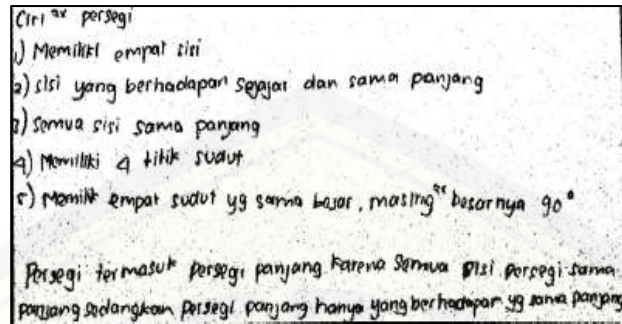 Ciri²x persegi
1) Memiliki empat sisi
2) sisi yang berhadapan sejajar dan sama panjang
3) semua sisi sama panjang
4) Memiliki 4 titik sudut
5) Memilki empat sudut yg sama besar, masing²x besarnya 90°
Persegi termasuk persegi panjang karena semua sisi persegi sama
panjang sedangkan persegi panjang hanya yang berhadapan yg sama panjang